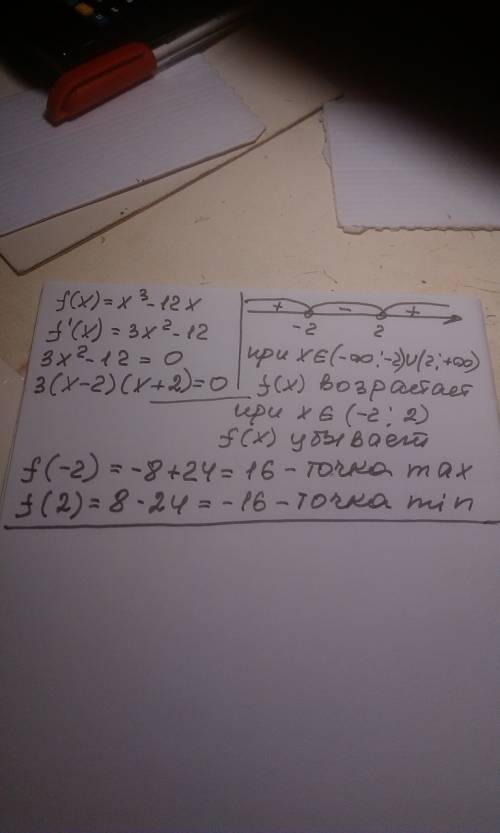 f(x)=x³-12x
f'(x)=3x²-12
3x²-12=0
3(x-2)(x+2)=0
+ - +
-2 2
при x∈(-∞;-2)∪(2;+∞)
f(x) возрастает
при x∈(-2;2)
f(x) убывает
f(-2)=-8+24=16-точка max
f(2)=8-24=-16-точка min